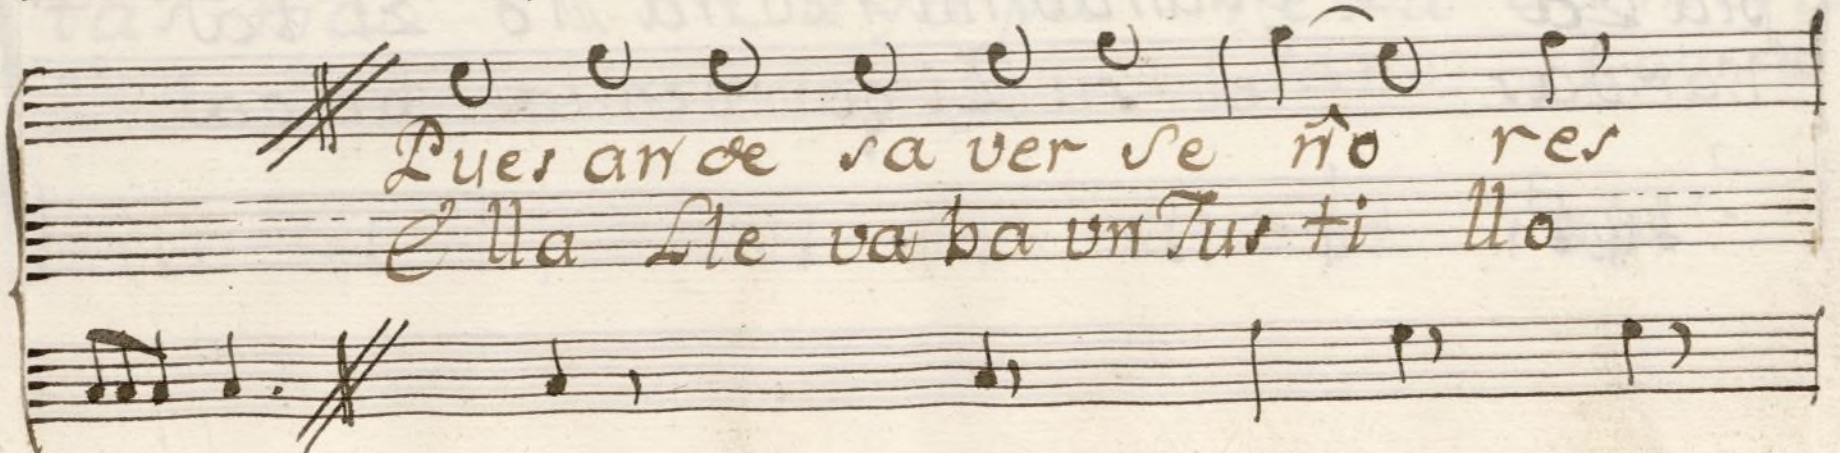 Pues an de sa ver se ño res
Ella Lle va ba vn Jus ti llo